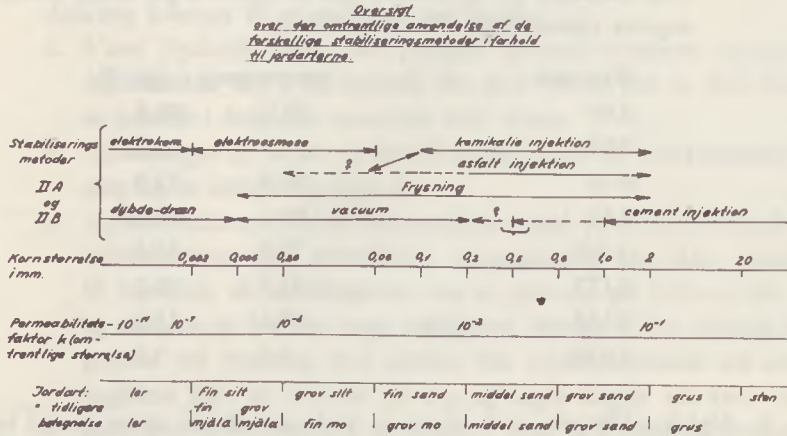 Oversigt
over den omtrentlige anvendelse af de
forskellige stabiliseringsmetoder i forhold
til jordarterne.
Stabiliserings elektrokem elektroosmose kemikalie injektion
metoder ? asfalt injektion
II A Frysning
og
II B dybde-dræn vacuum ? cement injektion
Kornstørrelse 0,002 0,006 0,20 0,06 0,1 0,2 0,5 0,6 1,0 2 20
i mm.
Permeabilitets- 10⁻⁹ 10⁻⁷ 10⁻⁵ 10⁻³ 10⁻¹
faktor k (om-
trentlige størrelse)
Jordart: ler fin silt grov silt fin sand middel sand grov sand grus sten
" tidligere fin grov
betegnelse ler mjäla mjäla fin mo grov mo middel sand grov sand grus